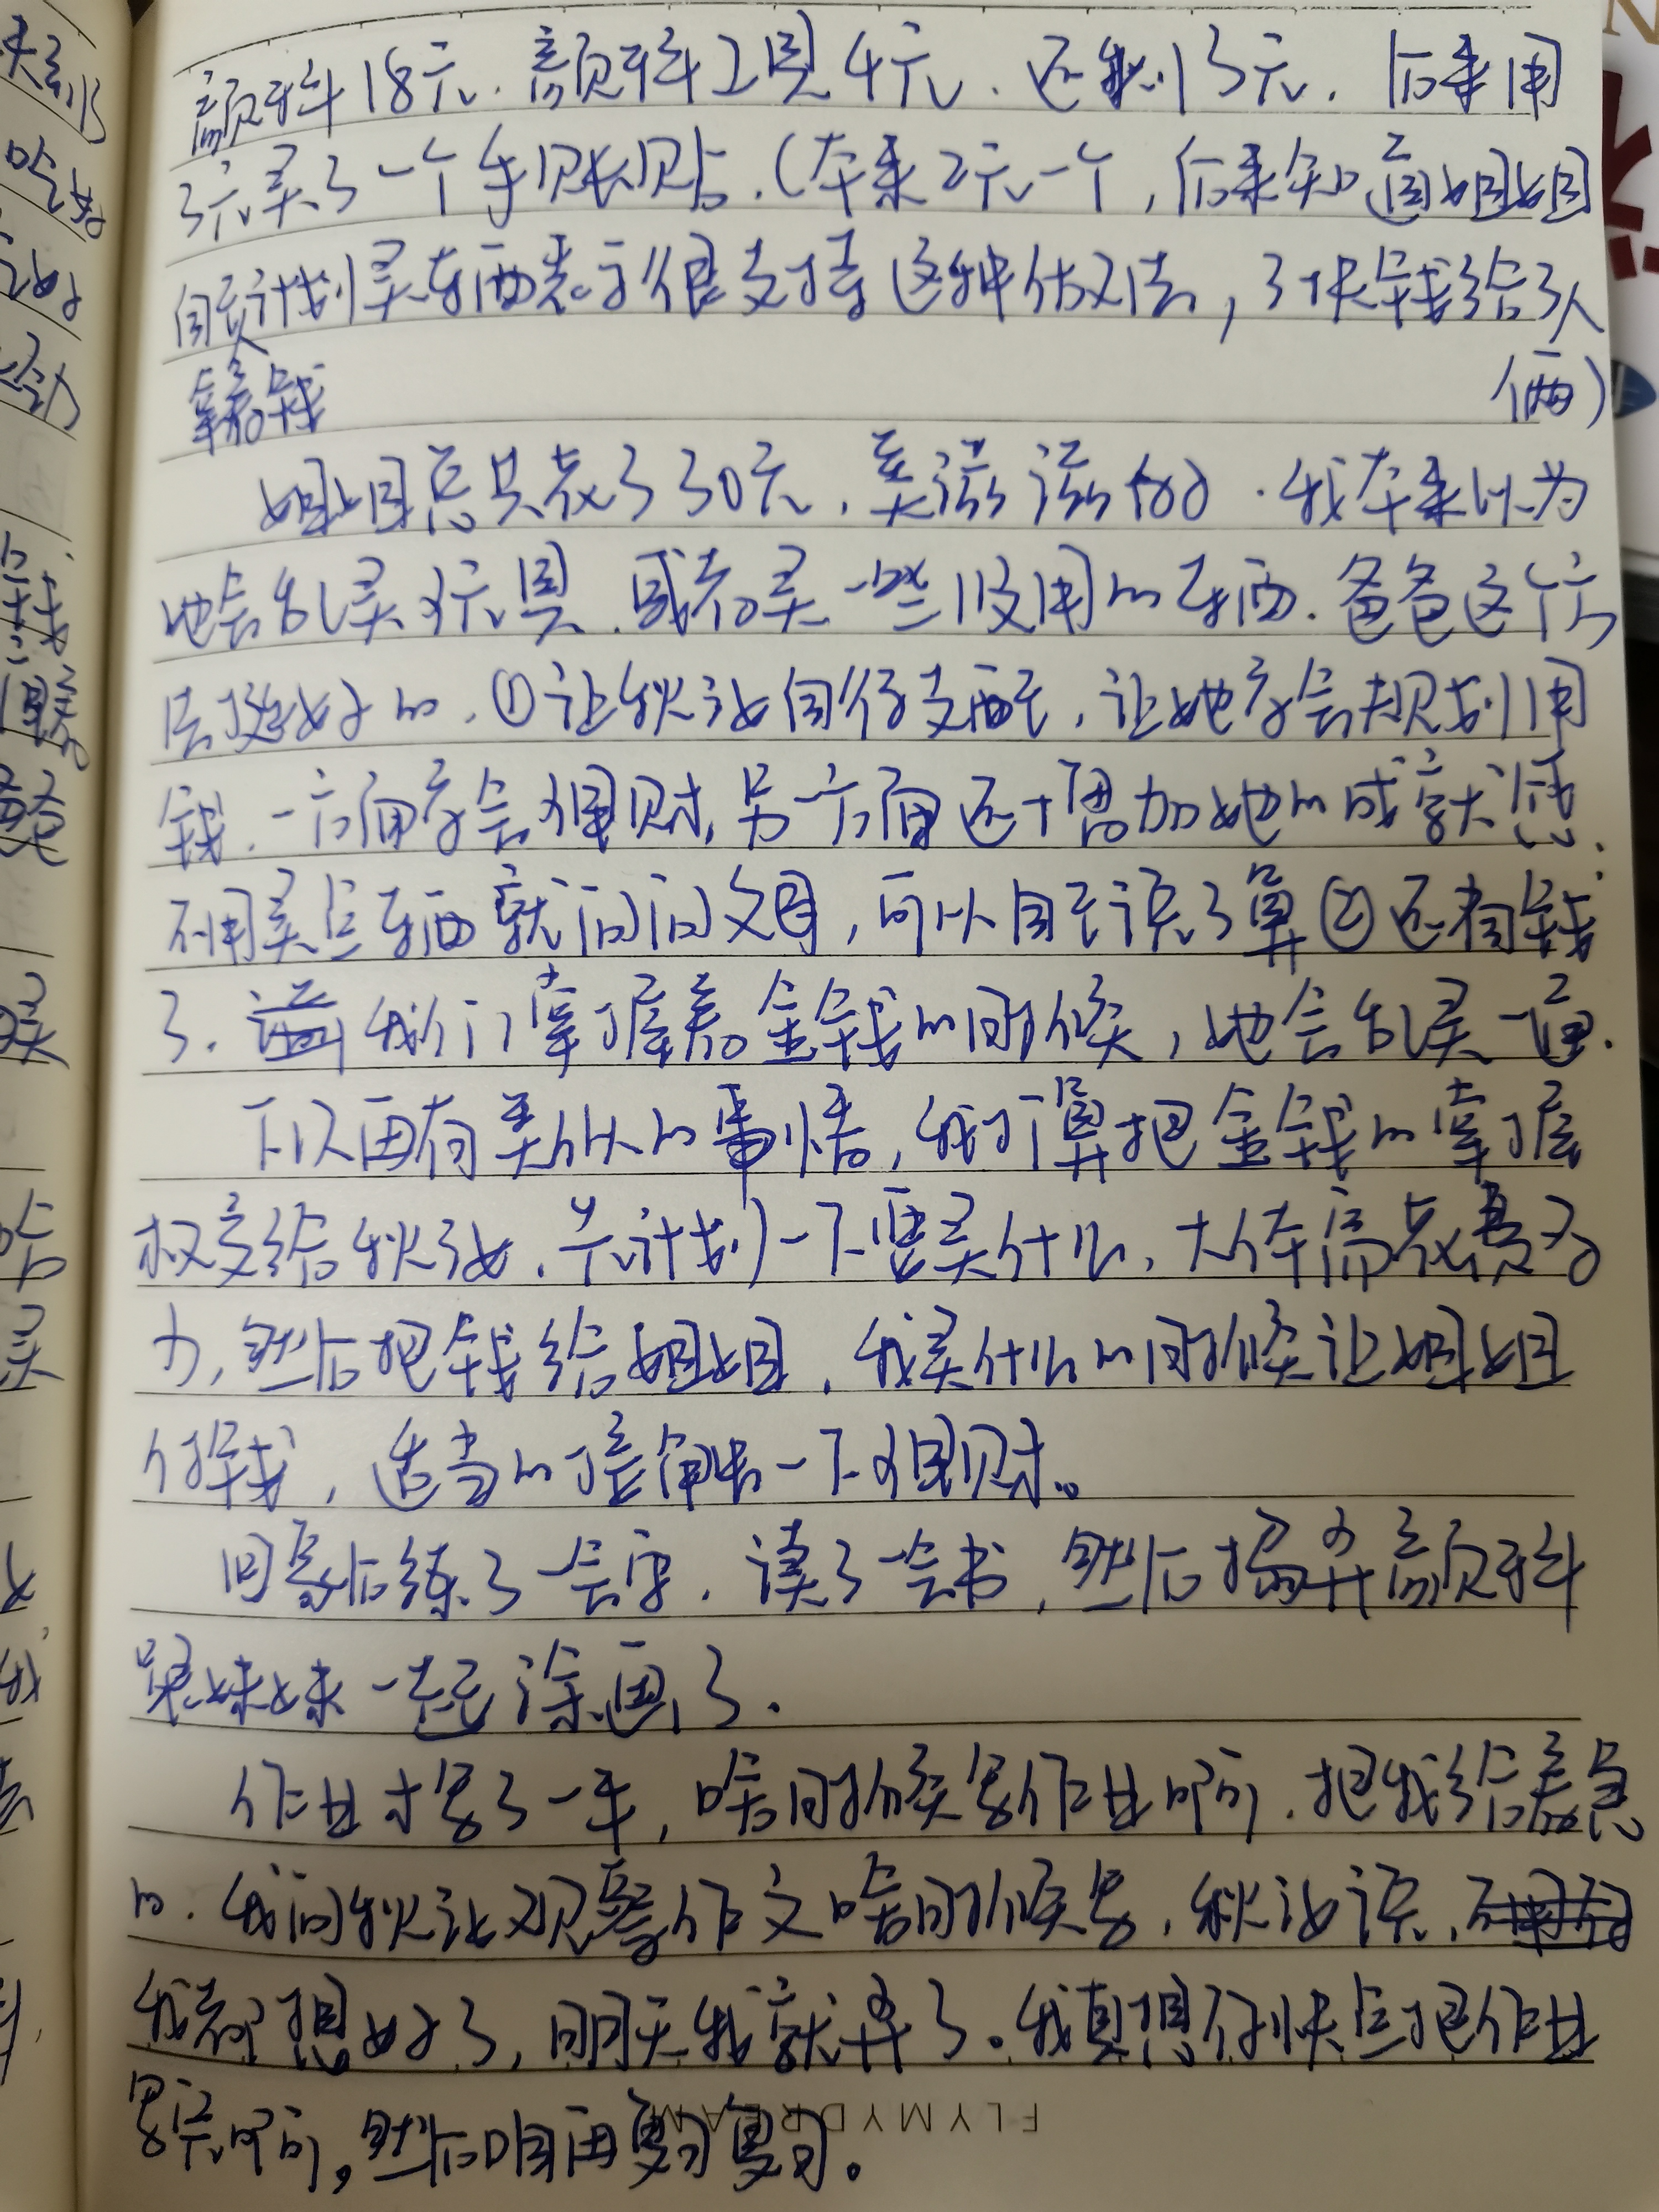 颜料18元.颜料工具4元.还剩13元.后来用
3元买了一个手账贴.(本来2元一个,后来知道姐姐
自己计划买东西表示很支持这种做法,3块钱给了人
拿着钱
俩)
姐姐总共花了30元,美滋滋的.我本来以为
她会乱买玩具.或者买一些没用的东西.爸爸这个方
法挺好的.①让秋汝自行支配,让她学会规划用
钱.一方面学会理财,另一方面还增加她的成就感.
不用买点东西就问问父母,可以自己说了算②还有钱
了.我们掌握着金钱的时候,她会乱买一通.
下次再有类似的事情,我打算把金钱的掌握
权交给秋汝.先计划一下要买什么,大体需花费多
少,然后把钱给姐姐.我买什么的时候让姐姐
付钱,适当的接触一下理财。
回家后练了一会字.读了一会书,然后捣弄颜料
跟妹妹一起涂画了.
作业才写了一半,啥时候写作业啊.把我给着急
的.我问秋汝观察作文啥时候写,秋汝说,
我都想好了,明天我就弄了。我真想你快点把作业
写完啊,然后咱再复习复习。
FLYMYDREAM